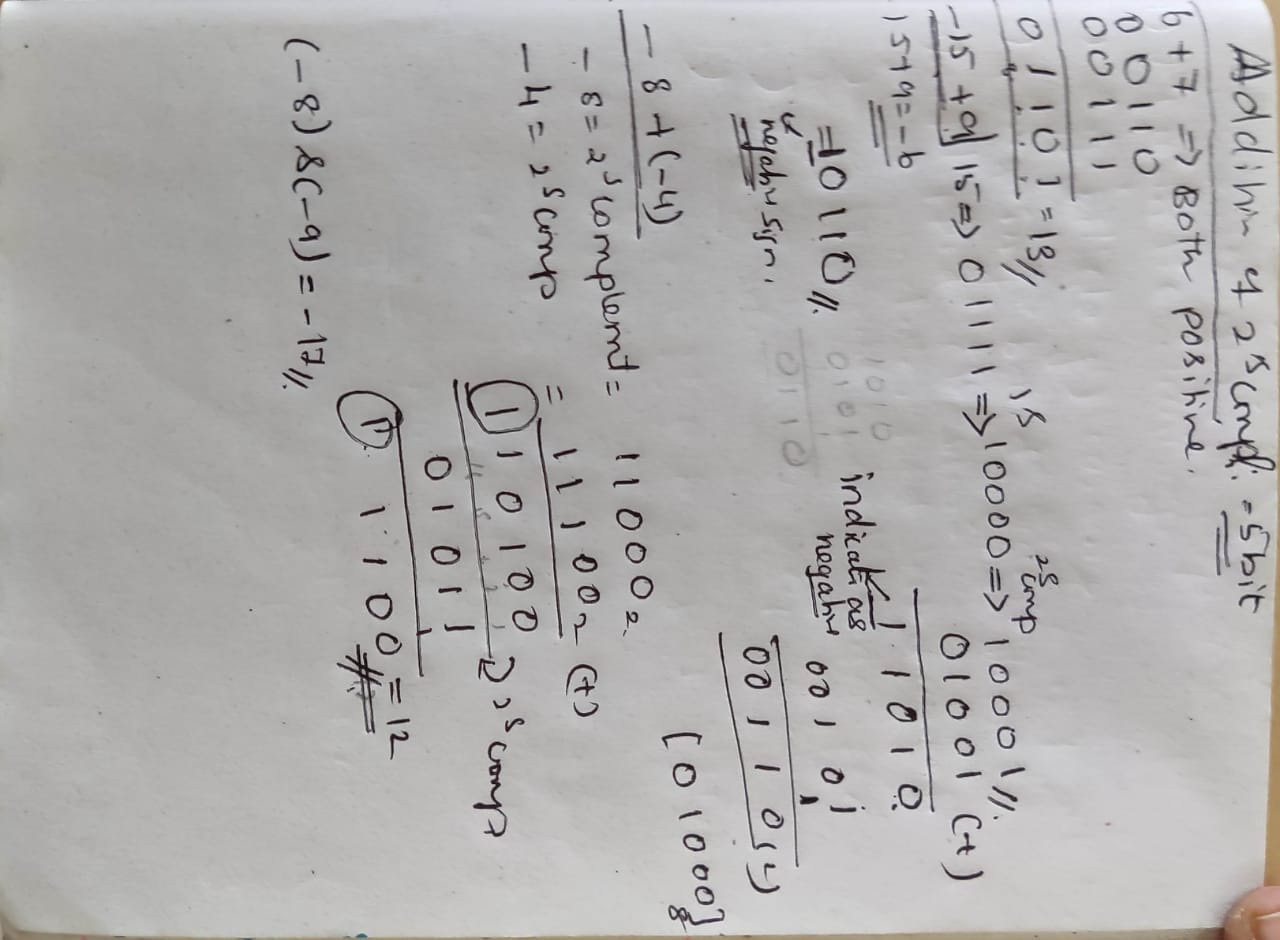 Addition of 2's compl. - 5 bit
6 + 7 => Both positive.
00110
00111
01101 = 13//
-15 + 9] 15 => 01111 => 1's 10000 => 2s comp 10001//.
01001 (+)
15+9 = -6
11010
indicate as negative
1010
0101
0110
= 10110//.
negative sign.
00101
1
00110(2)
[01000]8
- 8 + (-4)
- 8 = 2's complemt = 11000₂
- 4 = 2s comp = 11100₂ (+)
1 10100 2's comp
01011
1
1 1100 = 12
(-8) & (-9) = -17//.